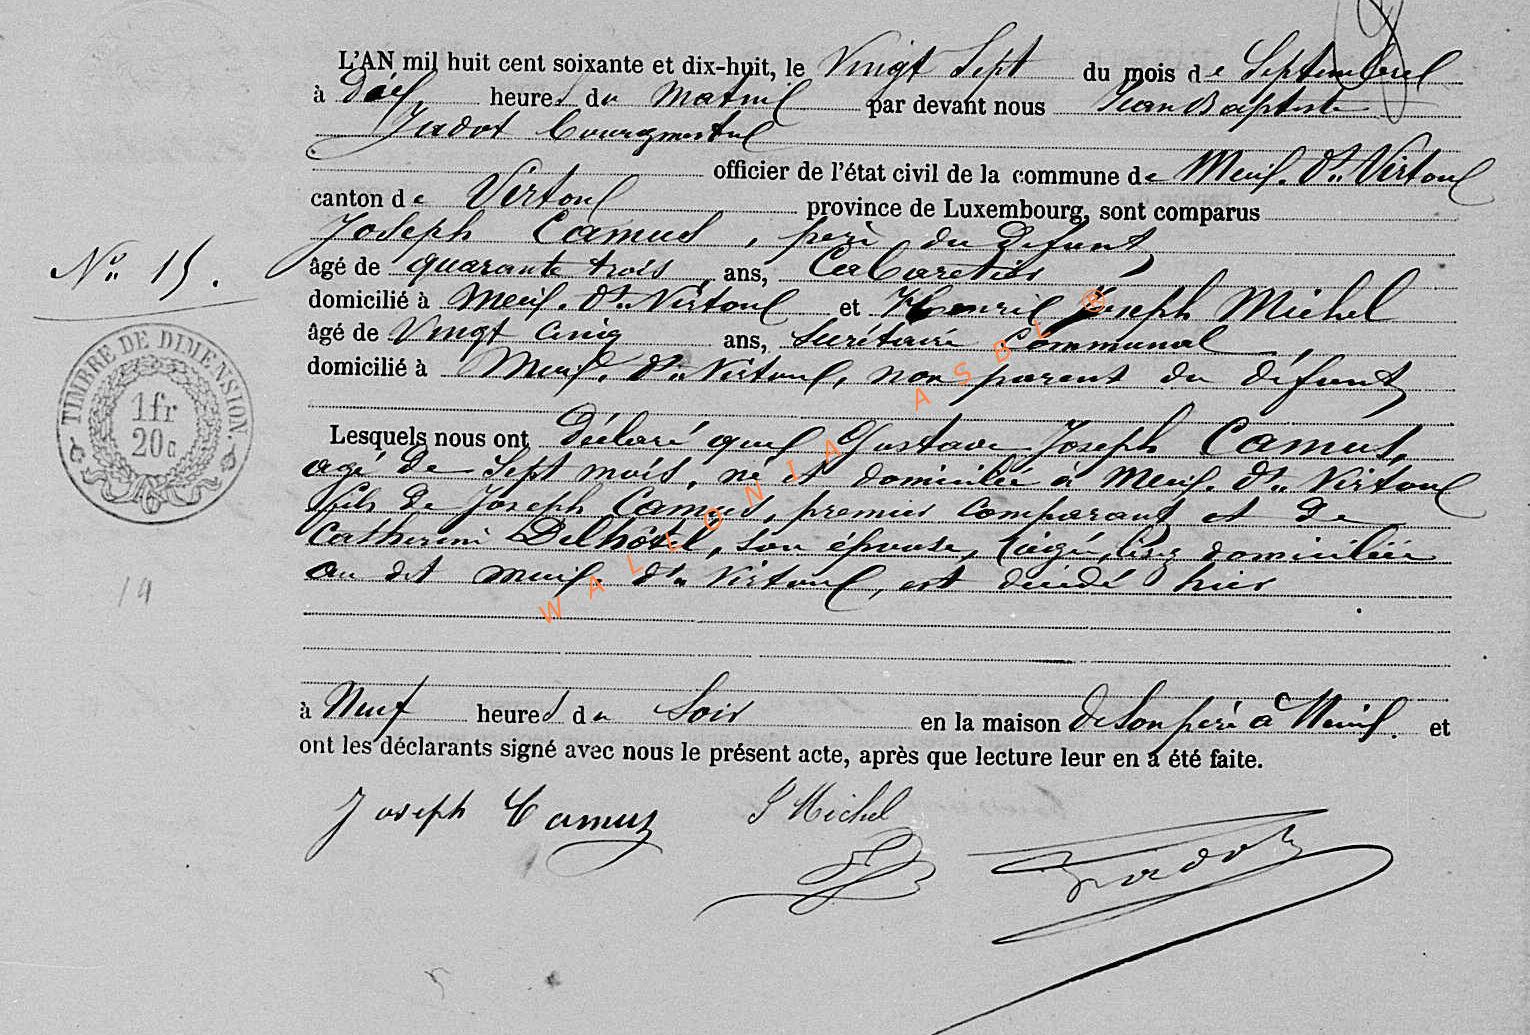 L'AN mil huit cent soixante et dix-huit, le Vingt Sept du mois de Septembre
à dix heures du matin par devant nous Jean Baptiste
Jadot Bourgmestre
officier de l'état civil de la commune de Meix-dt-Virton
canton de Virton province de Luxembourg, sont comparus
Joseph Camus, père du défunt
âgé de quarante trois ans, Cabaretier
domicilié à Meix-dt-Virton et Henri Joseph Michel
N° 15.
âgé de Vingt cinq ans, Secrétaire Communal,
domicilié à Meix-dt-Virton, non parent du défunt
Lesquels nous ont déclaré que Gustave Joseph Camus,
agé de Sept mois, né et domicilié à Meix-dt-Virton
fils de Joseph Camus, premier comparant et de
Catherine Delhôtel, son épouse, domiciliée
au dit Meix-dt-Virton, est décédé hier
à Neuf heures du Soir en la maison de Son père à Meix. et
ont les déclarants signé avec nous le présent acte, après que lecture leur en a été faite.
Joseph Camus J Michel Jadot
TIMBRE DE DIMENSION.
1fr
20c
19
WALLONIA ASBL ®